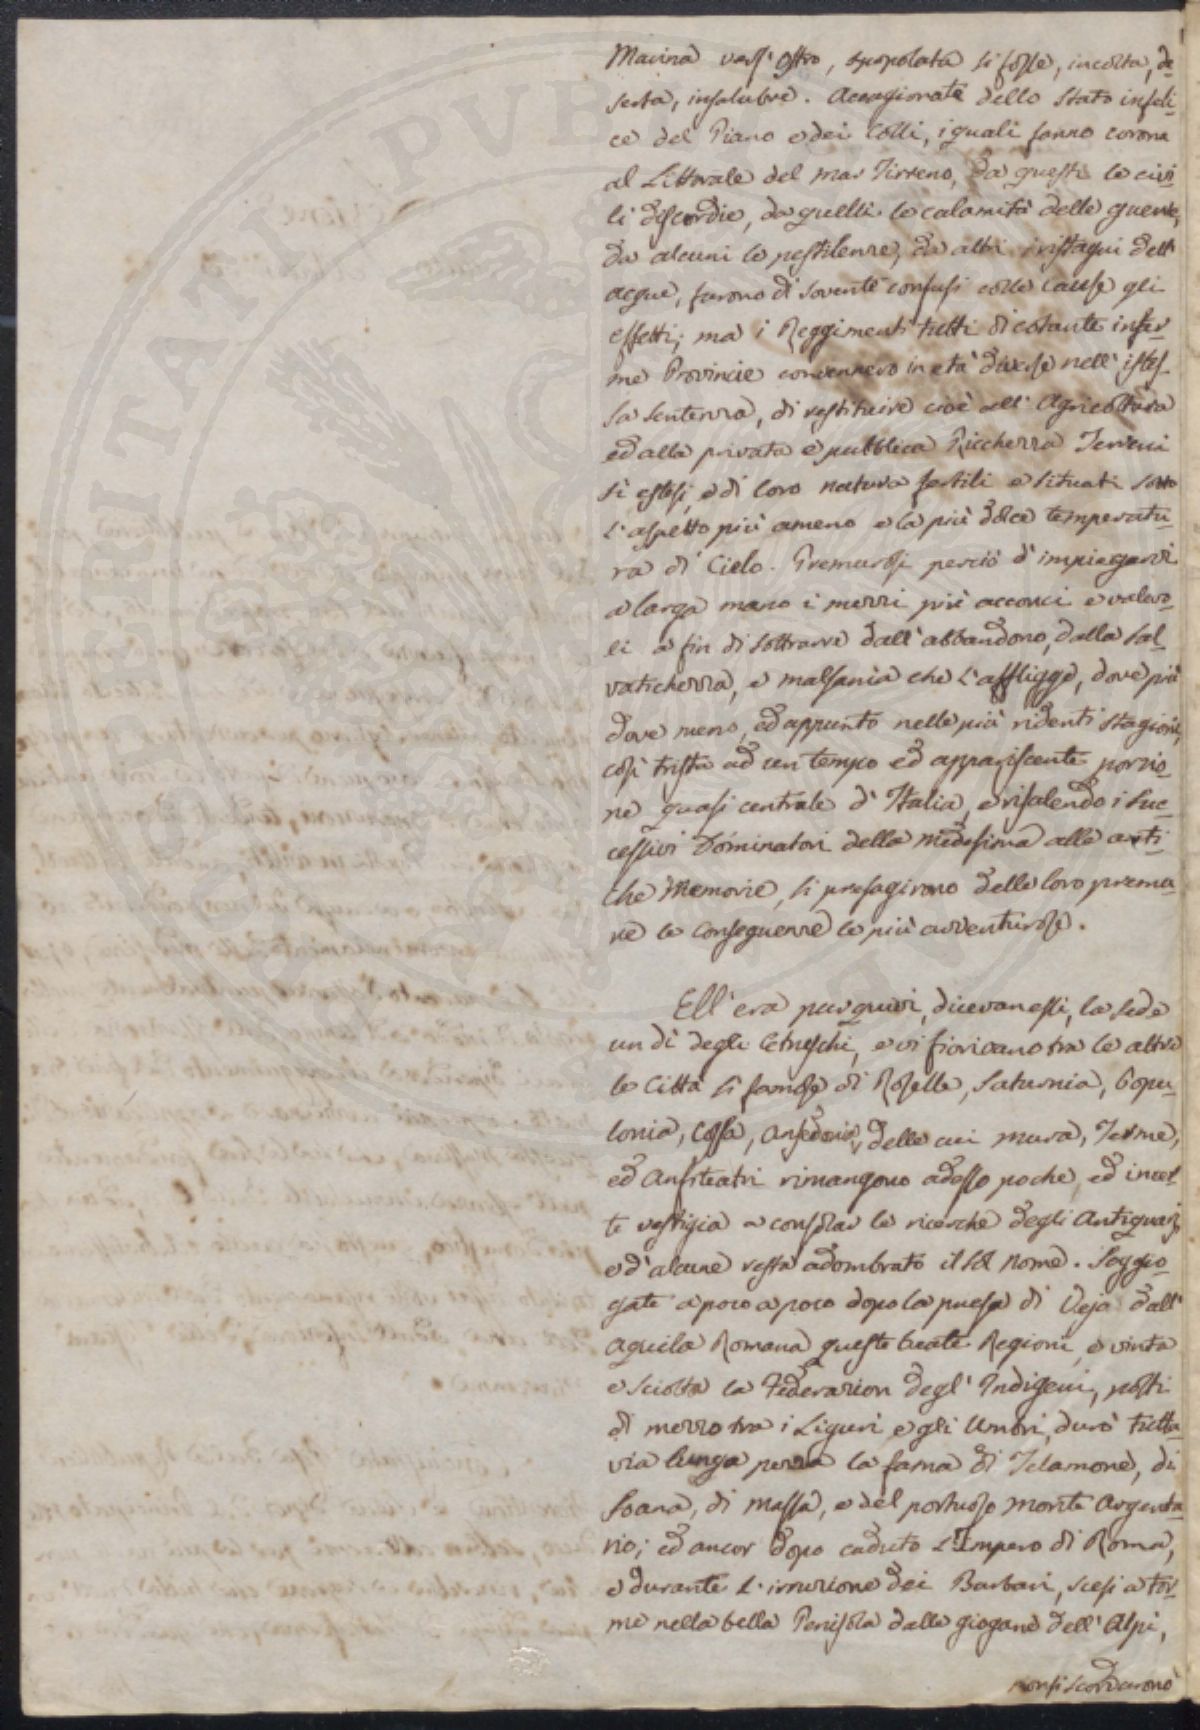 Marina vers'Ostro, spopolata si fosse, incolta, de-
serta, insalubre. Accagionate dello Stato infeli-
ce del Piano e dei Colli, i quali fanno corona
al Littorale del mar Tirreno, da questi le civi-
li discordie, da quelli le calamità delle guerre,
da alcuni le pestilenze, da altri i ristagni dell'
acque, furono di sovente confusi colle cause gli
effetti; ma i Reggimenti tutti di cotante infer-
me Provincie convennero in età diverse nell'istes-
sa sentenza, di restituire cioè all'Agricoltura
ed alla privata e pubblica Ricchezza Terreni
sì estesi, e di loro natura fertili e situati sotto
l'aspetto più ameno e la più dolce temperatu-
ra di Cielo. Premurosi perciò d'impiegarvi
a larga mano i mezzi più acconci e valevo-
li a fin di sottrarre dall'abbandono, dalla sal-
vatichezza, e malsania che l'affligge, dove più
dove meno, ed appunto nelle più ridenti stagioni,
così trista ad un tempo ed appariscente porzio-
ne quasi centrale d'Italia, e risalendo i suc-
cessivi Dominatori della medesima alle anti-
che Memorie, si presagirono delle loro premu-
re le conseguenze le più avventurose.
Ell'era pur quivi, dicevan essi, la sede
un dì degli Etruschi, e vi fiorivano tra le altre
le Città sì famose di Roselle, Saturnia, Popu-
lonia, Cossa, Ansedonia, delle cui mura, Terme,
ed Anfiteatri rimangono adesso poche, ed incer-
te vestigia a consolar le ricerche degli Antiquarj
e d'alcune resta adombrato il sol nome. Soggio-
gate a poco a poco dopo la presa di Veja dall'
Aquila Romana queste beate Regioni, e vinta
e sciolta la Federazion degl'Indigeni, posti
di mezzo tra i Liguri e gli Umbri, durò tutta-
via lunga pezza la fama di Telamone, di
Soana, di Massa, e del portuoso monte Argenta-
rio; ed ancor dopo caduto l'Impero di Roma,
e durante l'irruzione dei Barbari, scesi a tor-
me nella bella Penisola dalle giogane dell'Alpi,
non si scordarono